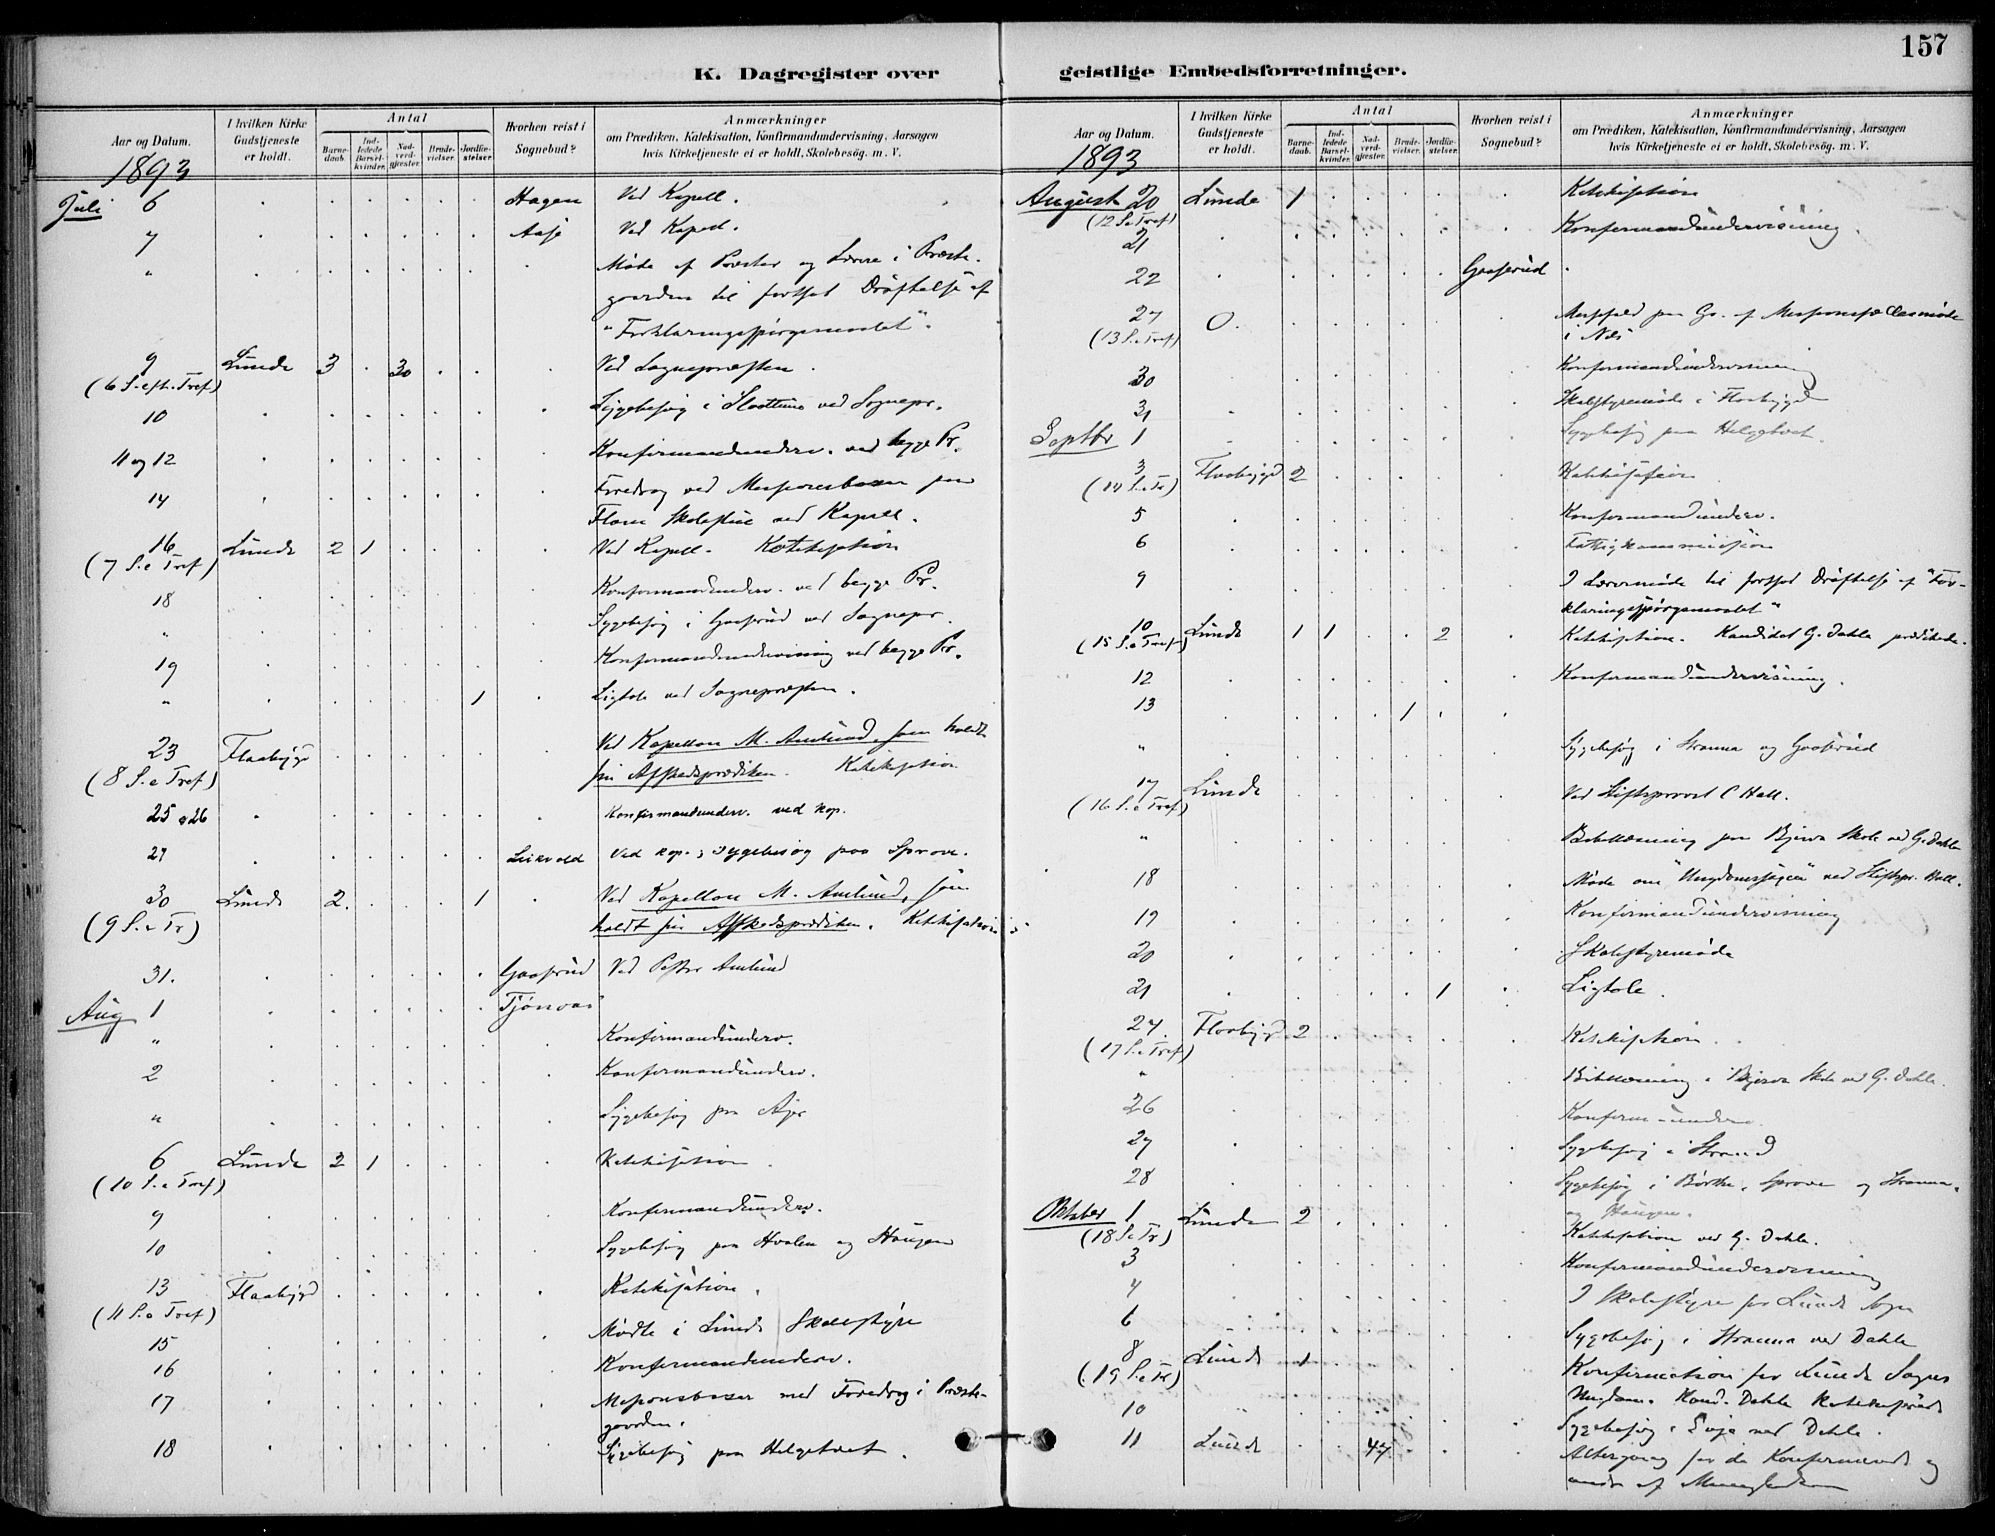 157
K. Dagregister over geistlige Embedsforretninger.
Aar og Datum.
I hvilken Kirke Gudstjeneste er holdt.
Antal
Barne-daab.
Ind-ledede Barsel-kvinder.
Nad-verd-gjæster.
Brude-vielser.
Jordfæ-stelser.
Hvorhen reist i Sognebud?
Anmærkninger
om Prædiken, Katekisation, Konfirmandundervisning, Aarsagen
hvis Kirketjeneste ei er holdt, Skolebesög. m. V.
1893
Juli 6 Hagen Ved Kapell.
7 Aase Ved Kapell.
" Møde af Prester og Lærere i Præste-
gaarden til fortsat Drøftelse af
"Forklaringsspørgsmaalet".
9 Lunde 3 . 30 Ved Sognepræsten.
(6 S. eft. Tref)
10 Sygebesøg i Slaattene ved Sognepr.
11 og 12 Konfirmandunderv. ved begge Pr.
14 Foredrag ved Missionsbasar paa
Flom Skolestue ved Kapell.
16 Lunde 2 1 Ved Kapell. Katekisation
(7 S. e Tref)
18 Konfirmandunderv. ved begge Pr.
" Sygebesøg i Gaasrud ved Sognepr.
19 Konfirmandundervisning ved begge Pr.
" 1 Ligtale ved Sognepræsten.
23 Flaabygd Ved Kapellan M. Amlund, som holdt
(8 S. e Tref) sin Afskedsprædiken. Katekisation
25 o 26 Konfirmandunderv. ved kap.
29 Ved kap. ; sygebesøg paa Sprove.
30 Lunde 2. 1 Ved Kapellan M. Amlund, som
(9 S. e Tr) holdt sin Afskedsprædiken. Katekisation
31. Gaasrud Ved Pastor Amlund
Aug 1 Tjønnaas
" Konfirmandunderv.
2 Konfirmandunderv.
" Sygebesøg paa
6 Lunde 2 1 Katekisation.
(10 S. e Tref)
9 Konfirmandunderv.
10 Sygebesøg paa Hvalen og Haugen
13 Flaabygd Katekisation.
(11 S. e Tref)
15 Mødte i Lunde Skolestyre
16 Konfirmandunderv.
17 Missionsbasar med Foredrag i Præste-
gaarden.
18 Sygebesøg paa Helgetveit.
Aar og Datum.
I hvilken Kirke Gudstjeneste er holdt.
Antal
Barne-daab.
Ind-ledede Barsel-kvinder.
Nad-verd-gjæster.
Brude-vielser.
Jordfæ-stelser.
Hvorhen reist i Sognebud?
Anmærkninger
om Prædiken, Katekisation, Konfirmandundervisning, Aarsagen
hvis Kirketjeneste ei er holdt, Skolebesög. m. V.
1893
August 20 Lunde 1 Katekisation
(12 S. e Tref)
21 Konfirmandundervisning.
22 Gaasrud
27 O. Messefald paa Gr. af
(13 S. e Tref) i Næs
30 Konfirmandundervisning
31 Skolestyremøde i Flaabygd
Septbr 1 Sygebesøg paa Helgetveit.
3 Flaabygd 2 Katekisation
(14 S. e Tr)
5 Konfirmandunderv.
6 Fattigkommission
9 I Lærermøde til fortsat Drøftelse af "For-
klaringsspørgsmaalet"
10 Lunde 1 1 2 Katekisation. Kandidat G. Dahle prædikede.
(15 S. e Tref)
12 Konfirmandundervisning.
13 1
" Sygebesøg i Stranna og Gaasrud
17 Lunde Ved Stiftsprovst C Hall.
(16 S. e Tref)
" Bibellæsning paa Bjerva Skole ved G. Dahle
18 Møde om "Ungdomssagen" ved Stiftspr. Hall.
19 Konfirmandundervisning
20 Skolestyremøde
21 1 Ligtale.
24. Flaabygd 2 Katekisation.
(17 S. e Tref)
" Bibellæsning i Bjerva Skole ved G. Dahle.
26 Konfirm-underv.
27 Sygebesøg i Strand
28 Sygebesøg i Børthe, Sprove og Stranna.
og Haugen.
Oktober 1 Lunde 2 Katekisation ved G. Dahle.
(18 S. e Tr)
3 Konfirmandundervisning
4 I Skolestyre for Lunde Sogn
6 Sygebesøg i Stranna ved Dahle
8 Lunde 1 Konfirmation for Lunde Sogns
(19 S. e Tr) Ungdom. Kand. Dahle
10 Sygebesøg i Evja ved Dahle.
11 Lunde 47 Altergang for de Konfirmerede og
andre af Menigheden